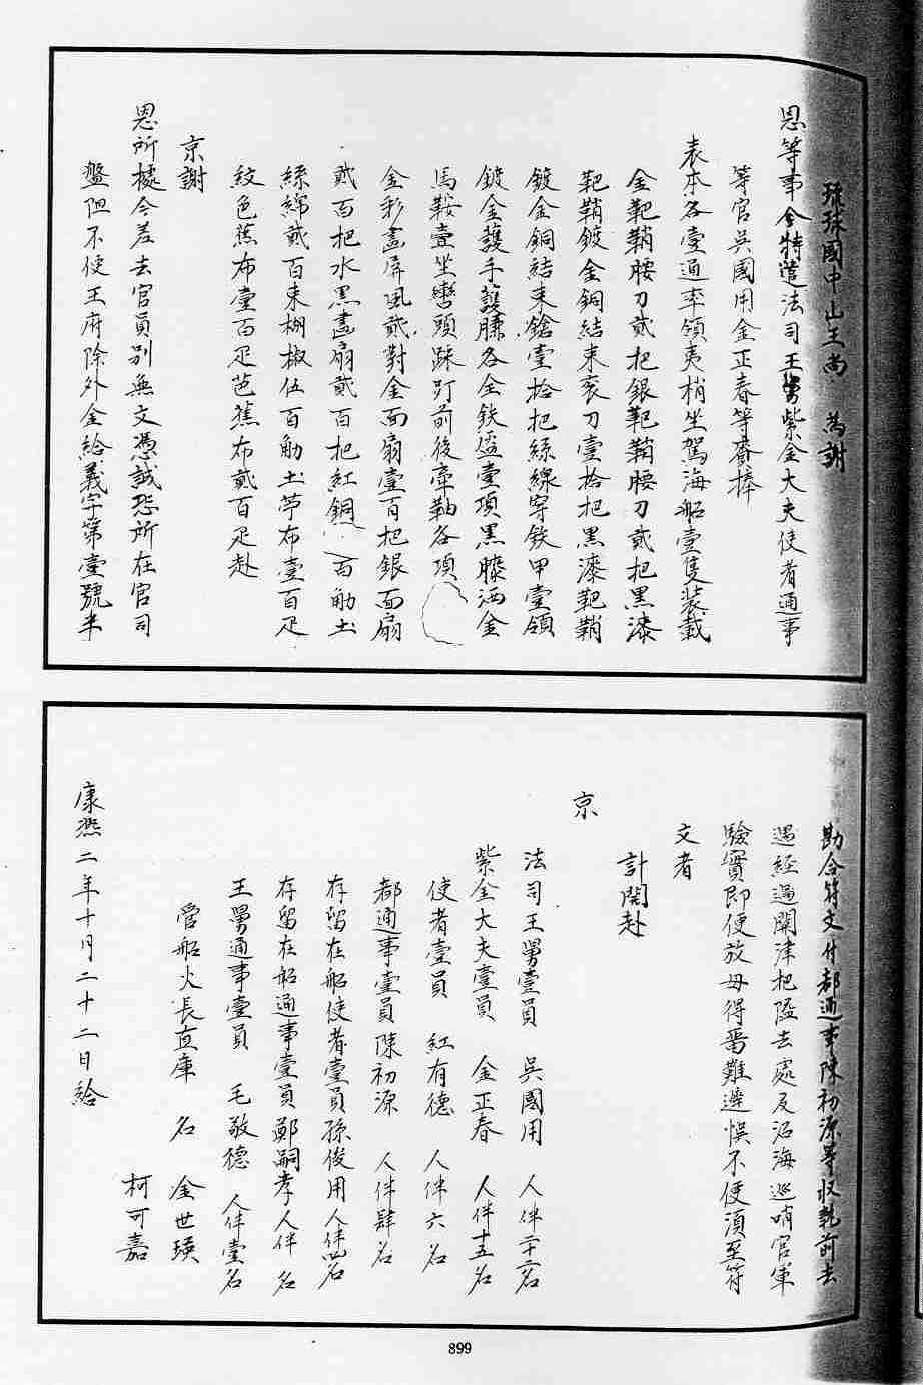 琉球國中山王尚　為謝
恩等事今特遣法司王舅紫金大夫使者通事
等官吳國用金正春等齎捧
表本各壹通率領夷梢坐駕海船壹隻裝載
金靶鞘腰刀貳把銀靶鞘腰刀貳把黑漆
靶鞘鍍金銅結束袞刀壹拾把黑漆靶鞘
鍍金銅結束鎗壹拾把絲線穿鉄甲壹領
鍍金護手護膁各全鉄盔壹頂黑膝洒金
馬鞍壹坐轡頭踩町前後牽鞦各項
金彩畫屏風貳對金面扇壹百把銀面扇
貳百把水黑畫扇貳百把紅銅　百觔土
絲綿貳百束棚椒伍百觔土苧布壹百疋
紋色蕉布壹百疋芭蕉布貳百疋赴
京謝
恩所據今差去官員別無文憑誠恐所在官司
盤阻不便王府除外金給義字第壹號半
勘合符文付都通事陳初源等收執前去
遇經過關津把隘去處及沿海巡哨官軍
驗實即便放毋得畱難遲悞不便須至符
文者
計開赴
京
法司王舅壹員　吳國用　人伴二十二名
紫金大夫壹員　金正春　人伴十五名
使者壹員　紅有德　人伴六名
都通事壹員陳初源　人伴肆名
存留在船使者壹員孫俊用人伴四名
存留在船通事壹員鄭嗣孝人伴　名
王舅通事壹員　毛敬德　人伴壹名
管船火長直庫　名　金世瑛
柯可嘉
康熙二年十月二十二日給
899